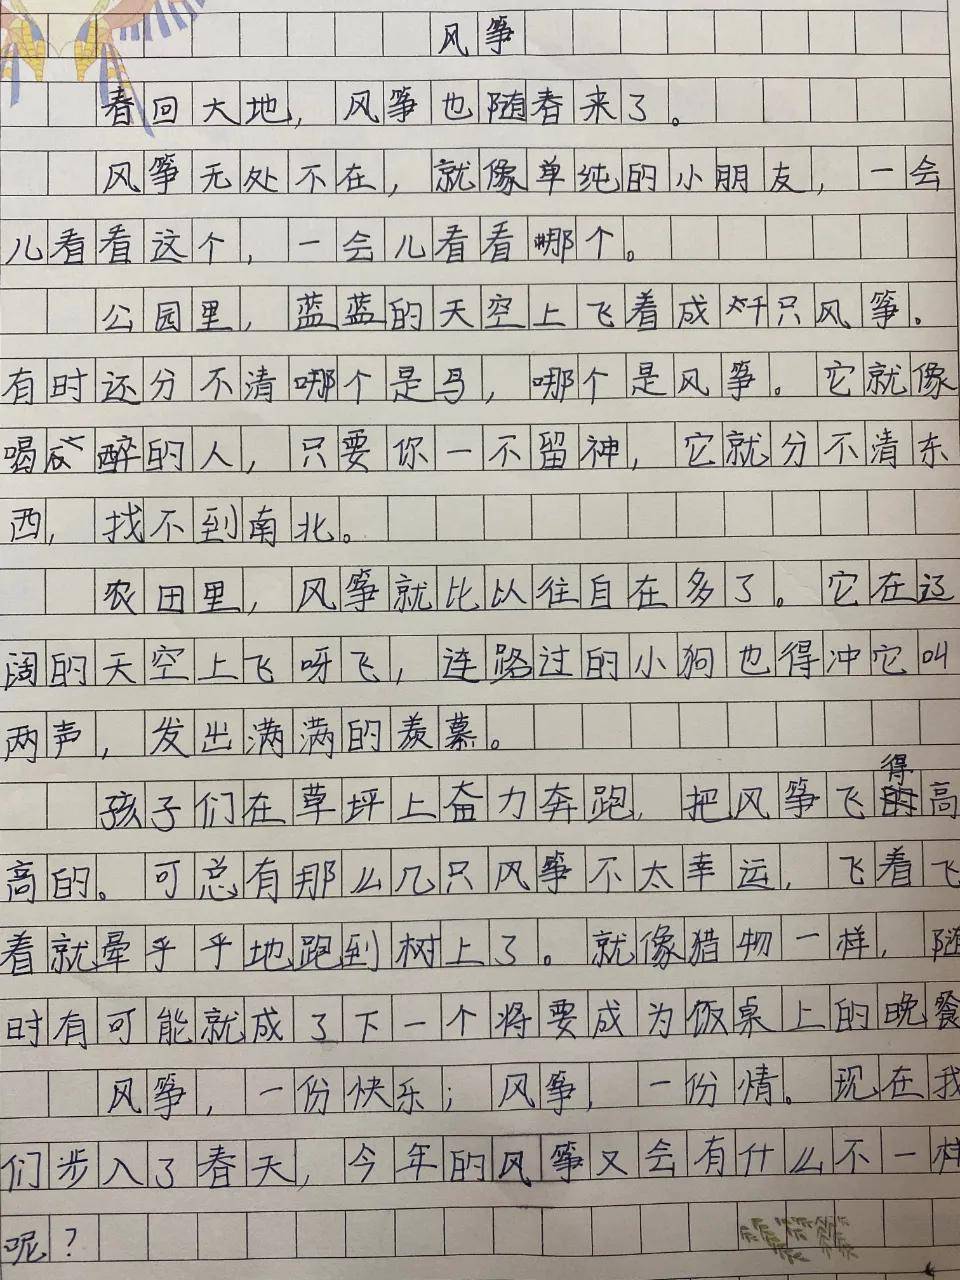 风筝
春回大地，风筝也随春来了。
风筝无处不在，就像单纯的小朋友，一会
儿看看这个，一会儿看看哪个。
公园里，蓝蓝的天空上飞着成千只风筝。
有时还分不清哪个是鸟，哪个是风筝。它就像
喝醉的人，只要你一不留神，它就分不清东
西，找不到南北。
农田里，风筝就比以往自在多了。它在辽
阔的天空上飞呀飞，连路过的小狗也得冲它叫
两声，发出满满的羡慕。
孩子们在草坪上奋力奔跑，把风筝飞得高
高的。可总有那么几只风筝不太幸运，飞着飞
着就晕乎乎地跑到树上了。就像猎物一样，随
时有可能就成了下一个将要成为饭桌上的晚餐
风筝，一份快乐；风筝，一份情。现在我
们步入了春天，今年的风筝又会有什么不一样
呢？